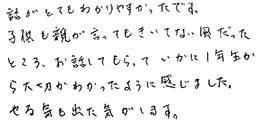 話がとてもわかりやすかったです。
子供も親が言ってもきいてない風だった
ところ、お話してもらっていかに1年生か
ら大切かわかったように感じました。
やる気も出た気がします。